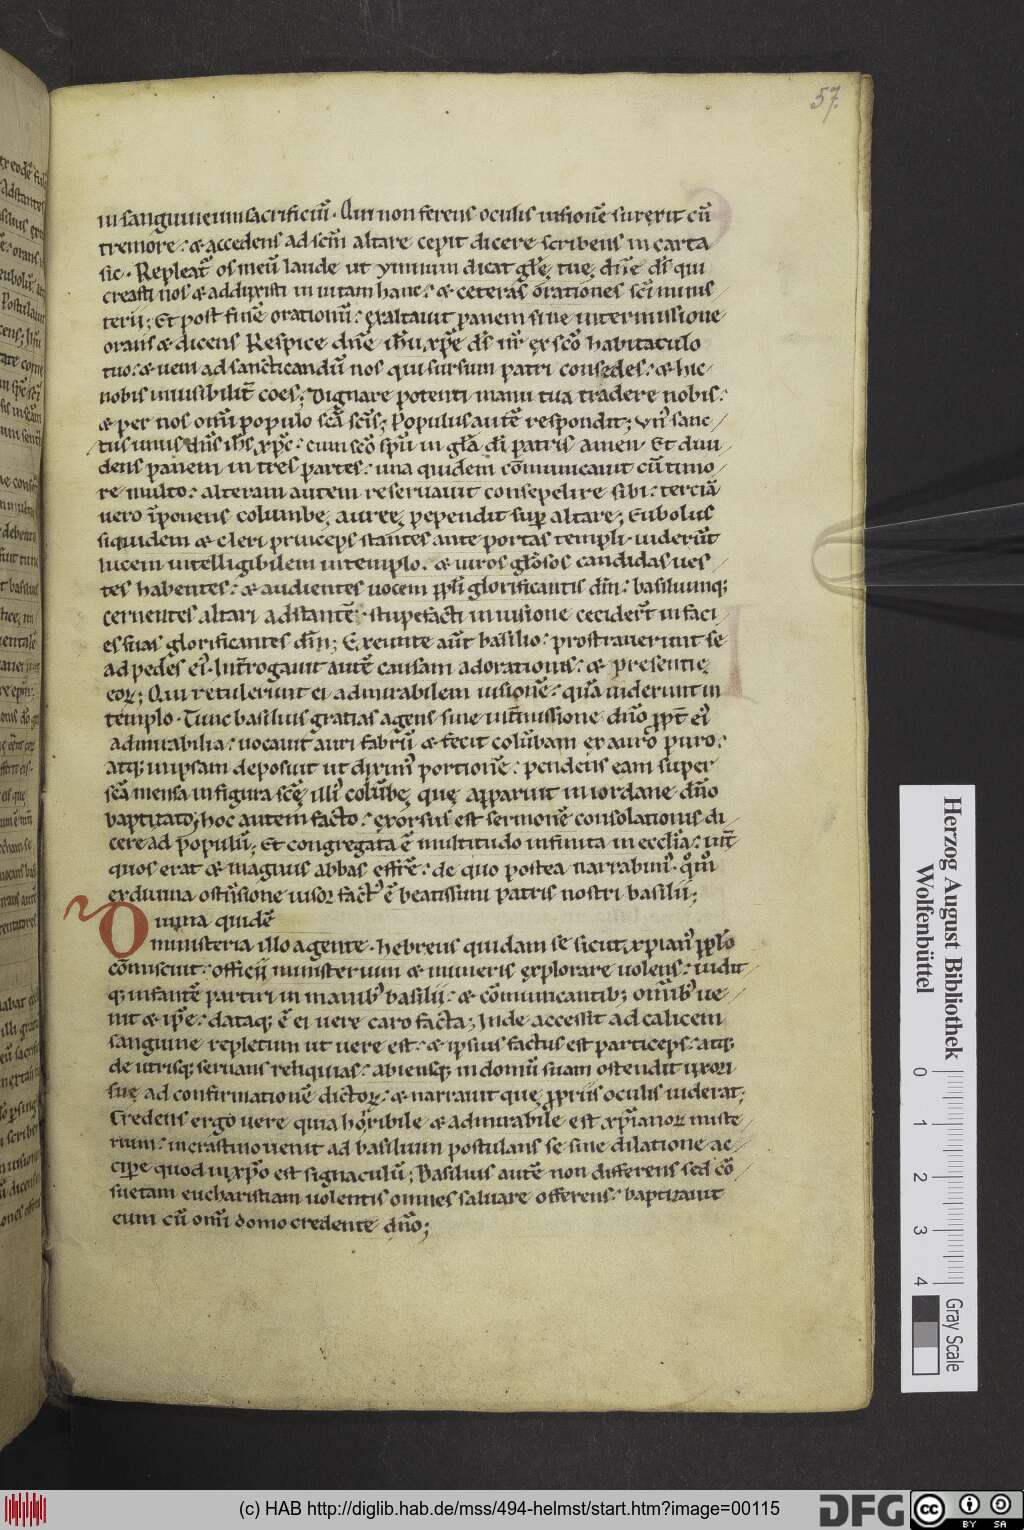 57.
in sanguineum sacrificiū. Qui non ferens oculis uisionē surexit cū
tremore: & accedens ad scm̄ altare cepit dicere scribens in carta
sic. Repleat̄ os meū laude ut ymnum dicat glē tuę dn̄e ds̄ qui
creasti nos & adduxisti in uitam hanc: & ceteras orationes sc̄i minis
terii; Et post finē orationū: exaltauit panem sine intermissione
orans & dicens Respice dn̄e ih̄u xp̄e ds̄ nr̄ ex sc̄o habitaculo
tuo: & ueni ad sanctificandū nos qui sursum patri consedes: & hic
nobis inuisibilit̄ coes; Dignare potenti manu tua tradere nobis:
& per nos om̄i populo sc̄a sc̄is; Populus autē respondit; un̄ sanc
tus unus dn̄s ih̄s xp̄c: cum sc̄o sp̄u in gla d̄i patris amen. Et diui
dens panem in tres partes: una quidem cōmunicauit cū timo
re multo: alteram autem reseruauit consepelire sibi: terciā
uero īponens columbę auręę pependit sup altare; Eubolus
siquidem & cleri princeps stantes ante portas templi uiderūt
lucem intelligibilem in templo. & uiros glōsos candidas ues
tes habentes: & audientes uocem pp̄li glorificantis dn̄m: basiliumq;
cernentes altari adstantē. stupefacti in uisione ceciderūt in faci
es suas glorificantes dn̄m; Exeunte aūt basilio: prostrauerunt se
ad pedes ei'. Int̄rogauit autē causam adorationis: & presentię
eoꝝ; Qui retulerunt ei admirabilem uisionē: quā uiderunt in
templo. Tunc basilius gratias agens sine int̄missione dn̄o ppt̄ ei'
admirabilia: uocauit aurifabrū & fecit colūbam ex auro puro:
atq; in ipsam deposuit ut diximꝰ portionē: pendens eam super
sc̄a mensa in figura sc̄ę illi' colūbę, quę apparuit in iordane dn̄o
baptizato; hoc autem facto: exorsus est sermonē consolationis di
cere ad populū; Et congregata ē multitudo infinita in ecclīa: int̄
quos erat & magnus abbas effrē: de quo postea narrabimꝰ. quō
ex diuina ostēsione uisoꝝ fact' ē beatissimi patris nostri basilii;
Diuina quidē
ministeria illo agente. hebreus quidam se sicut xp̄ian' pp̄lo
cōmiscuit: officii ministerium & muneris explorare uolens: uidit
q; infantē partiri in manib' basilii: & cōmunicantib; om̄ib' ue
nit & ip̄e: dataq; ē ei uere caro facta; Inde accessit ad calicem
sanguine repletum ut uere est: & ipsius factus est particeps: atq;
de utrisq; seruans reliquias: abiensq; in domū suam ostendit uxori
suę ad confirmationē dictoꝝ: & narrauit quę propriis oculis uiderat;
Credens ergo uere quia horribile & admirabile est xp̄ianoꝝ miste
rium: in crastino uenit ad basilium postulans se sine dilatione ac
cipere quod in xp̄o est signaculū; Basilius autē non differens sed cō
suetam eucharistiam uolentis omnes saluare offerens: baptizauit
eum cū om̄i domo credente dn̄o;
Herzog August Bibliothek
Wolfenbüttel
0 1 2 3 4
Gray Scale
(c) HAB http://diglib.hab.de/mss/494-helmst/start.htm?image=00115
DFG
cc BY SA